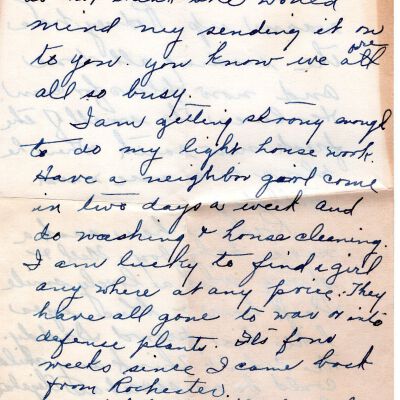 would
mind my sending it on
to you. you know we are all
all so busy.
I am getting strong enough
to do my light house work.
Have a neighbor girl come
in two days a week and
do washing & house cleaning.
I am lucky to find a girl
any where at any price. They
have all gone to war or into
defence plants. Its four
weeks since I came back
from Rochester.